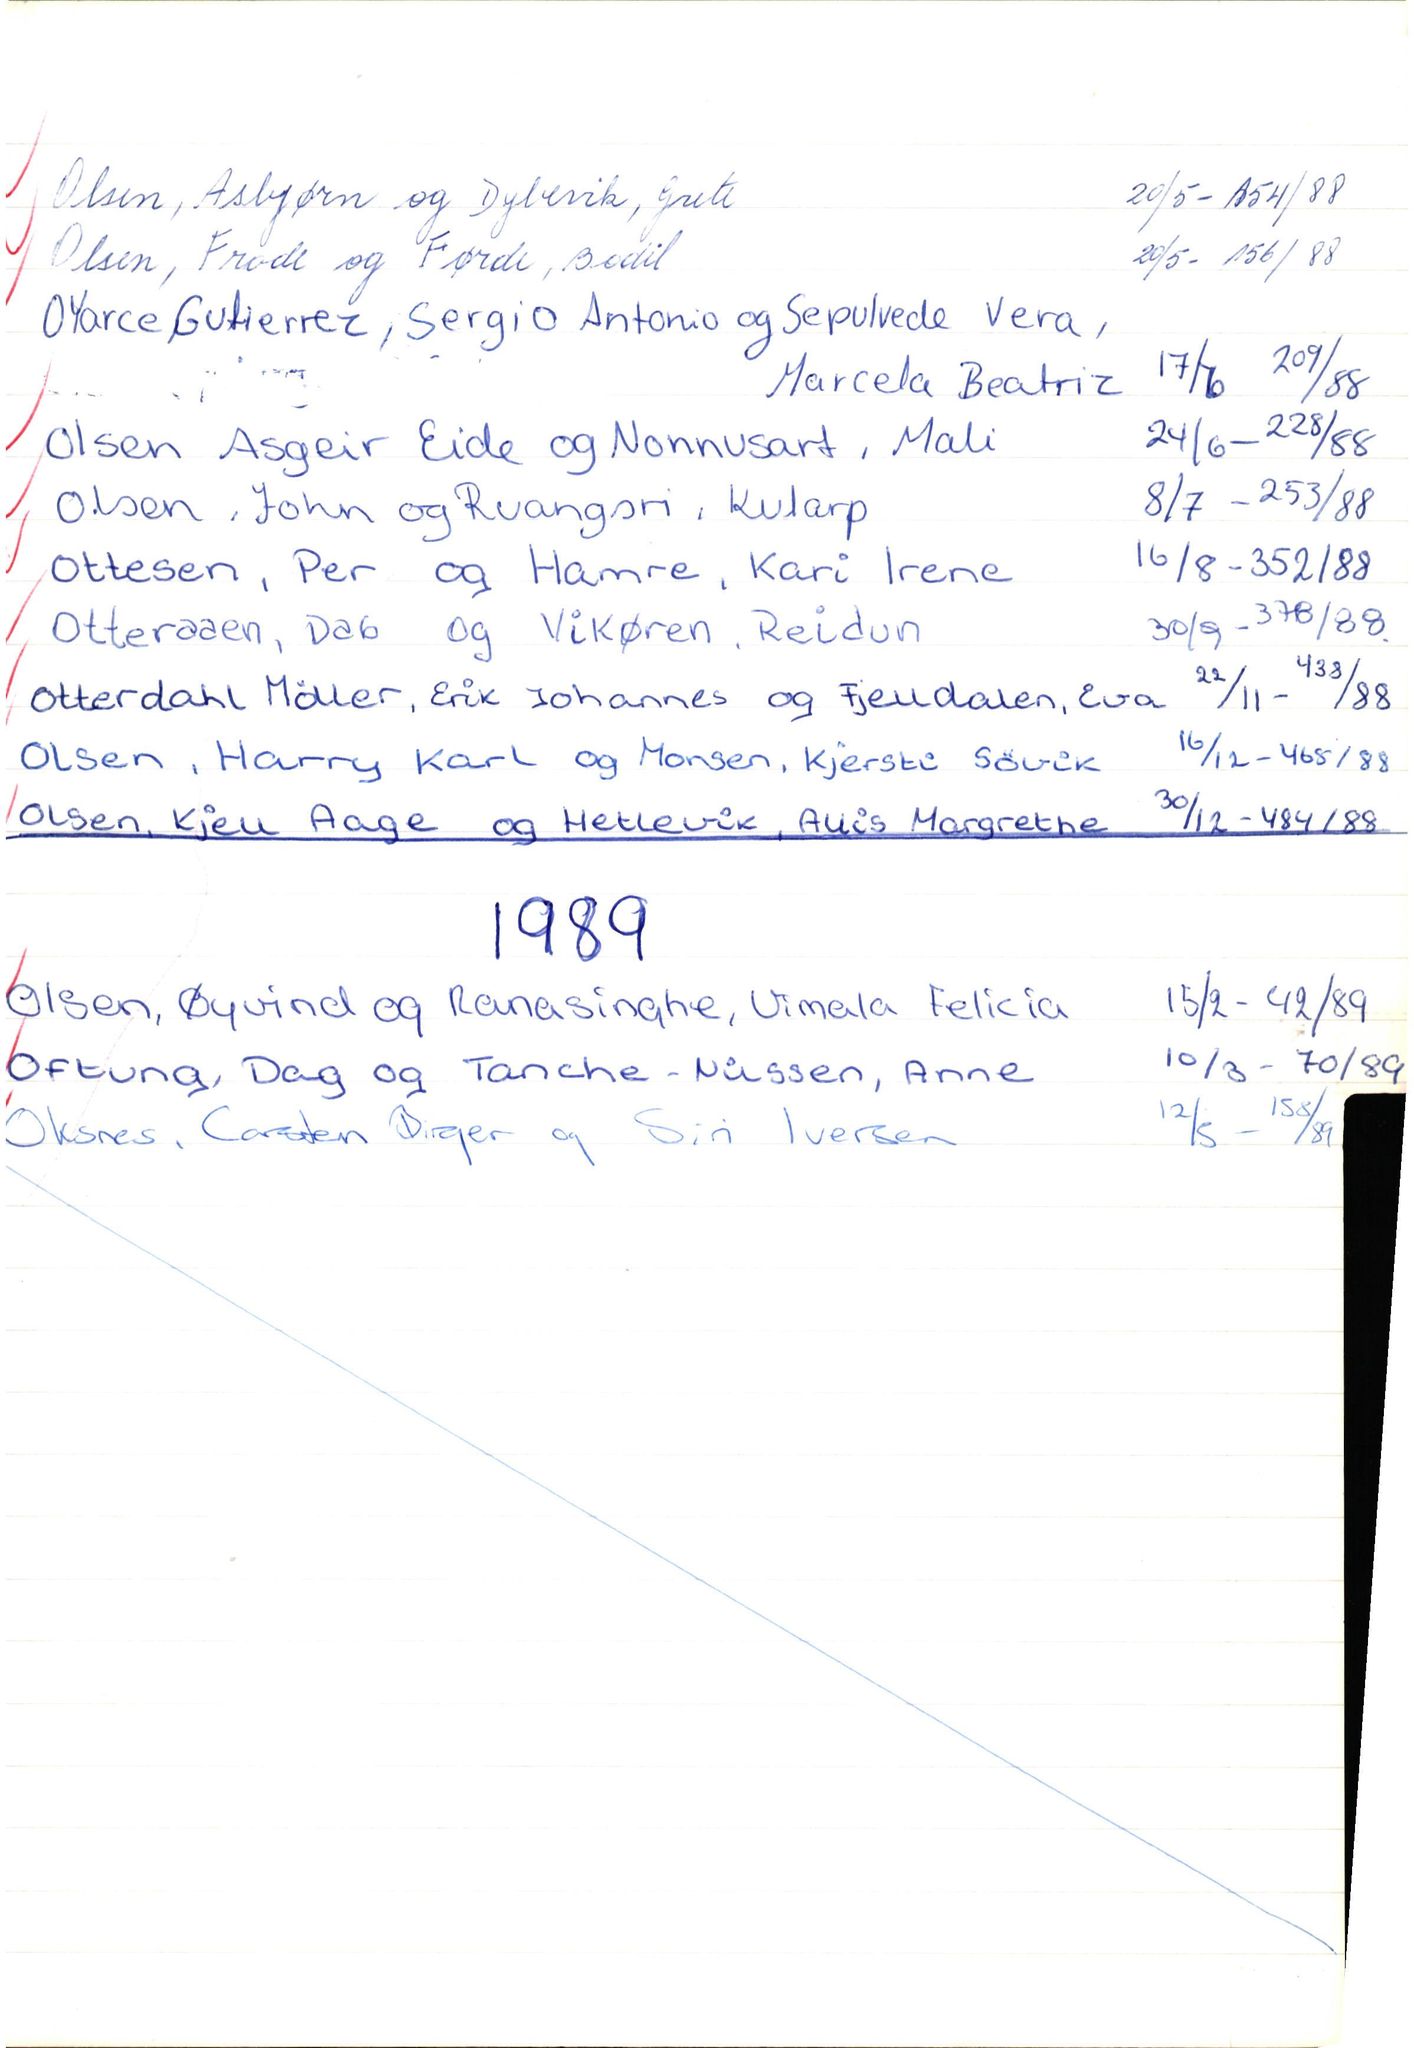 Olsen, Asbjørn og Dybevik, Grete 20/5 - 154/88
Olsen, Frode og Førde, Bodil 20/5 - 156/88
Oyarce Gutierrez, Sergio Antonio og Sepulvede Vera,
Marcela Beatriz 17/6 209/88
Olsen Asgeir Eide og Nonnusart, Mali 24/6 - 228/88
Olsen, John og Ruangsri, Kularp 8/7 - 253/88
Ottesen, Per og Hamre, Kari Irene 16/8 - 352/88
Otteraaen, Dag og Vikøren, Reidun 30/9 - 378/88.
Otterdahl Möller, Erik Johannes og Fjelldalen, Eva 22/11 - 438/88
Olsen, Harry Karl og Monsen, Kjersti Sövik 16/12 - 465/88
Olsen, Kjell Aage og Hetlevik, Allis Margrethe 30/12 - 484/88
1989
Olsen, Øyvind og Ranasinghe, Vimala Felicia 15/2 - 42/89
Oftung, Dag og Tanche-Nilssen, Anne 10/3 - 70/89
Oksnes, Carsten Birger og Siri Iversen 12/5 - 158/89